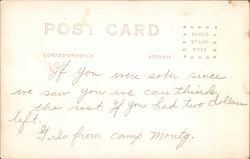 POST CARD
PLACE
STAMP
HERE
CORRESPONDENCE
ADDRESS
If you were sober since
we saw you we can think
the rest. If you had two dollars
left.
Girls from Camp Montg.